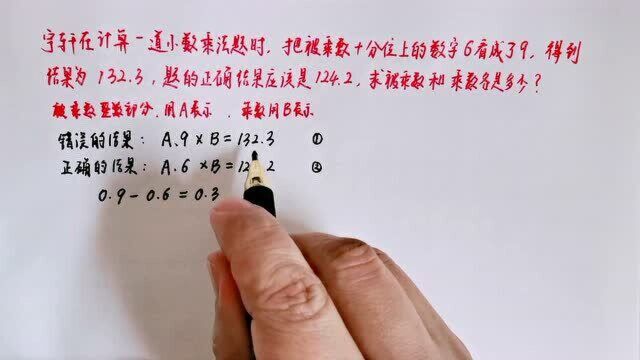 宇轩在计算一道小数乘法题时,把被乘数十分位上的数字6看成了9,得到
结果为 132.3,题的正确结果应该是124.2,求被乘数和乘数各是多少?
被乘数整数部分,用A表示,乘数用B表示
错误的结果: A.9×B=132.3 ①
正确的结果: A.6×B=12 2 ②
0.9-0.6=0.3